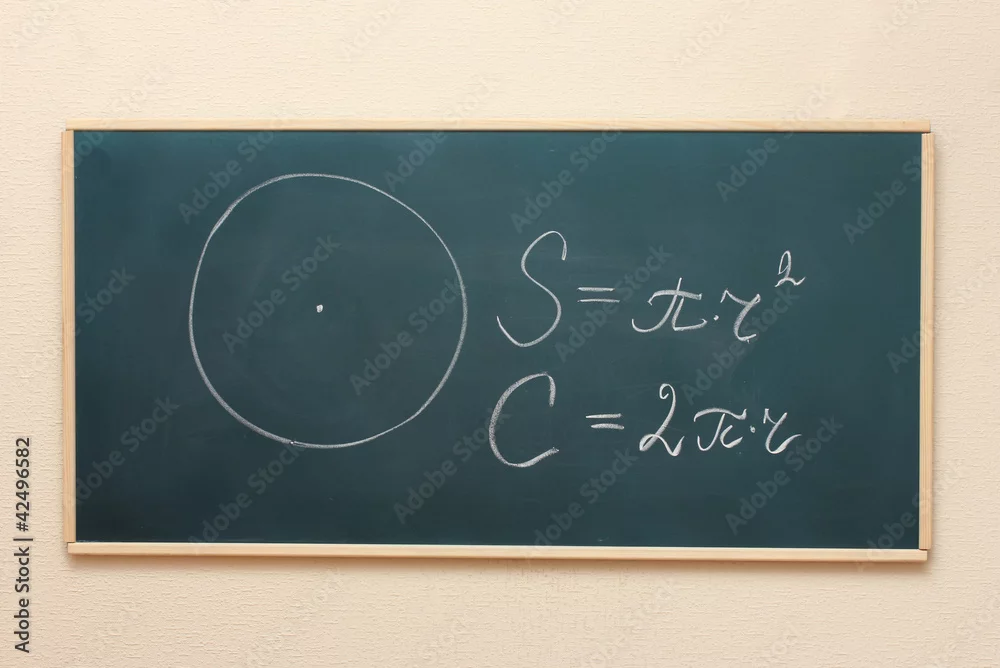 S = π·r²
C = 2π·r
Adobe Stock | #42496582